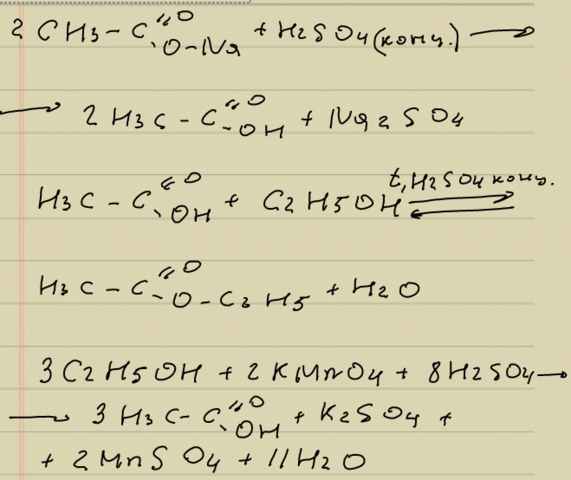 2 CH3 - C(=O)O-Na + H2SO4 (конц.) ⟶
⟶ 2 H3C - C(=O)OH + Na2SO4
H3C - C(=O)OH + C2H5OH ⇄ t, H2SO4 конц.
H3C - C(=O)O - C2H5 + H2O
3 C2H5OH + 2 KMnO4 + 8 H2SO4 ⟶
⟶ 3 H3C - C(=O)OH + K2SO4 +
+ 2 MnSO4 + 11 H2O